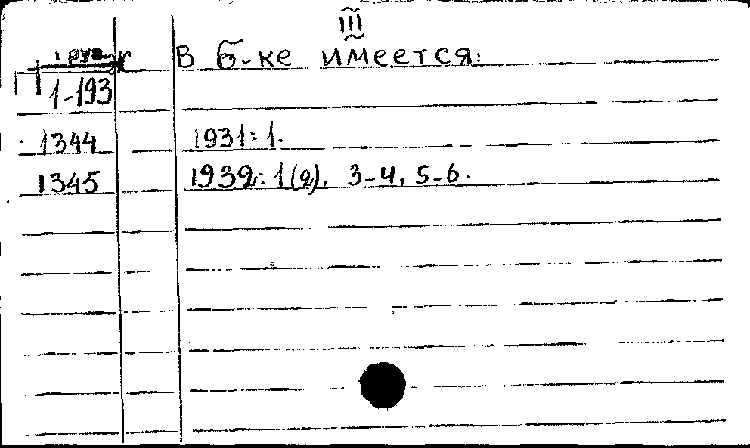 III
В б-ке имеется:
1-193
1344 1931: 1.
1345 1932: 1(2), 3-4, 5-6.